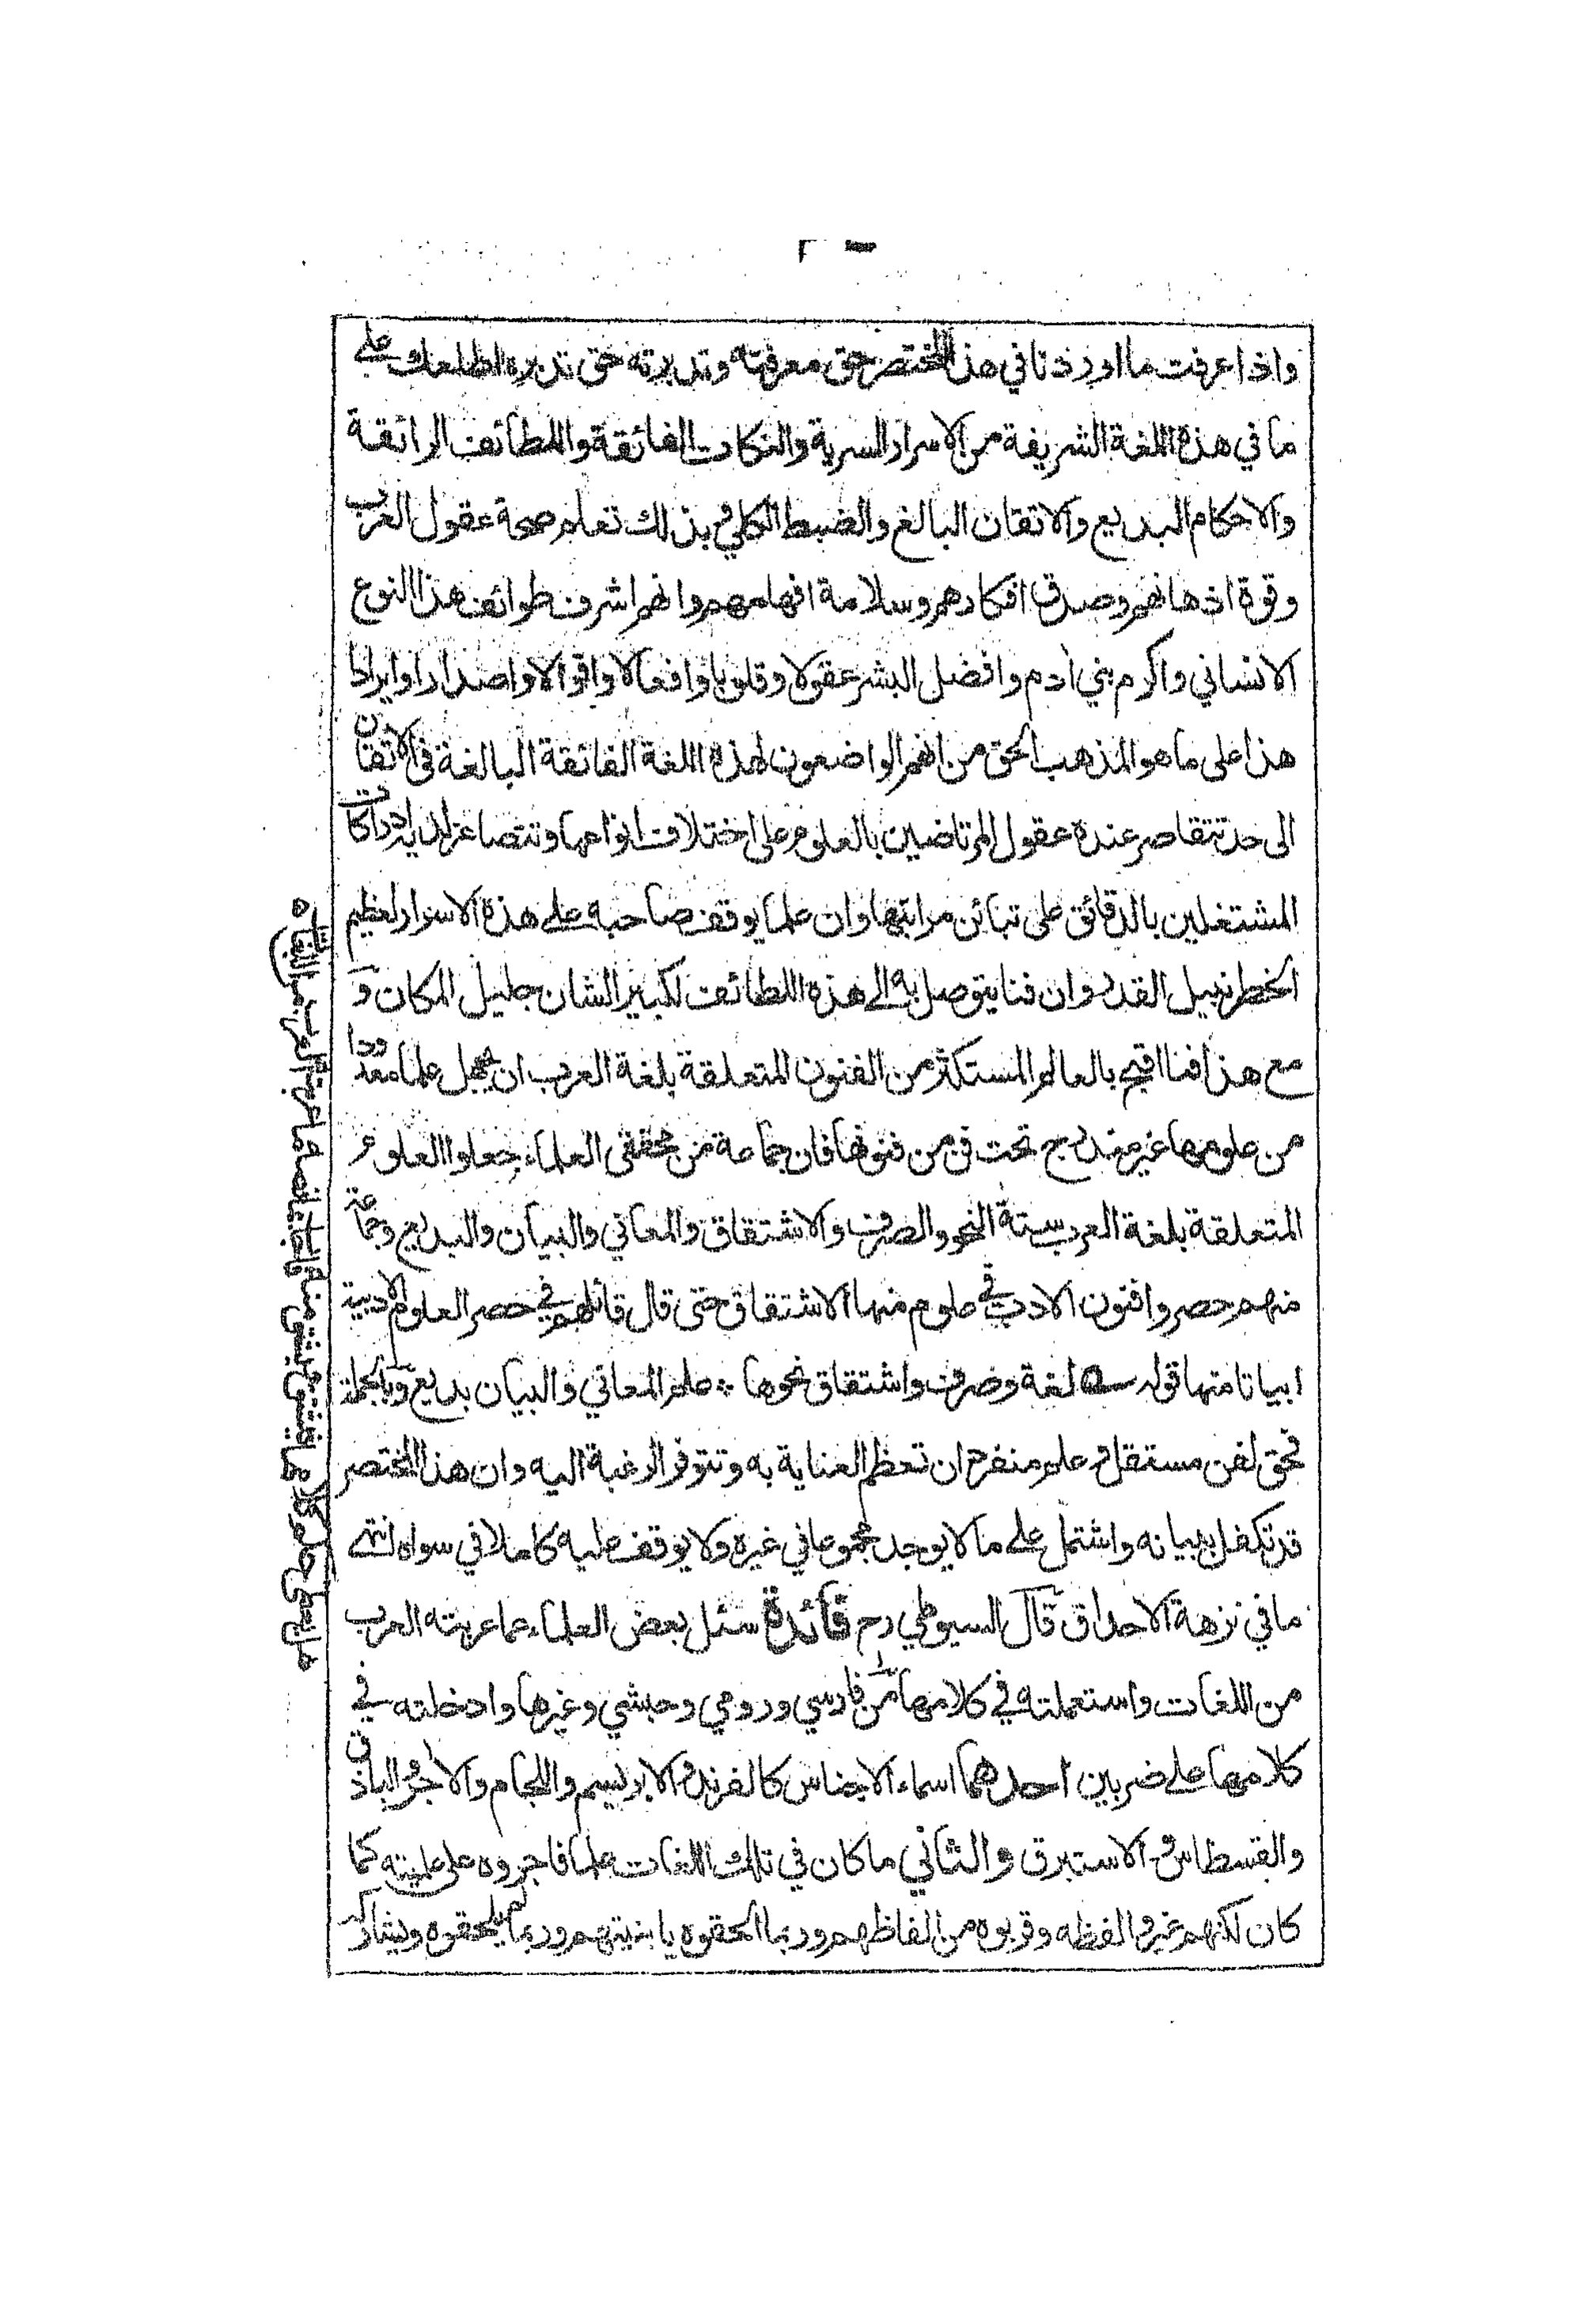 واذا عرفت ما اوردنا في هذا المختصر حق معرفته وتدبرته حق تدبره اطلعك على
ما في هذه اللغة الشريفة من الاسرار السرية والنكات الفائقة واللطائف الرائقة
والاحكام البديع والاتقان البالغ والضبط الكلي فبذلك تعلم صحة عقول العرب
وقوة اذهانهم وصدق افكارهم وسلامة افهامهم وانهم اشرف طوائف هذا النوع
الانساني واكرم بني آدم وافضل البشر عقولا وقلوبا وافعالا واقوالا واصدارا وايرادا
هذا على ما هو المذهب الحق من انهم الواضعون لهذه اللغة الفائقة البالغة في الاتقان
الى حد تتقاصر عنده عقول المرتاضين بالعلوم على اختلاف انواعها وتتصاغر لديه ادراكات
المشتغلين بالدقائق على تبائن مراتبها وان علما يوقف صاحبه على هذه الاسرار لعظيم
الخطر نبيل القدر وان فنا يتوصل به الى هذه اللطائف لكبير الشان جليل المكان و
مع هذا فما اقبح بالعالم المستكثر من الفنون المتعلقة بلغة العرب ان يجهل علما معدودا
من علومها غير مندرج تحت فن من فنونها فان جماعة من محققي العلماء جعلوا العلوم
المتعلقة بلغة العرب ستة النحو والصرف والاشتقاق والمعاني والبيان والبديع وجماعة
منهم حصروا فنون الادب في علوم منها الاشتقاق حتى قال قائلهم في حصر العلوم الادبية
ابياتا منها قوله لغة وصرف واشتقاق نحوها ؞ علم المعاني والبيان بديع وبالجملة
فحق لفن مستقل وعلم منفرد ان تعظم العناية به وتتوفر الرغبة اليه وان هذا المختصر
قد تكفل ببيانه واشتمل على ما لا يوجد مجموعا في غيره ولا يوقف عليه كاملا في سواه انتهى
ما في نزهة الاحداق قال السيوطي رح فائدة سئل بعض العلماء عما عربته العرب
من اللغات واستعملته في كلامها من فارسي ورومي وحبشي وغيرها وادخلته في
كلامها على ضربين احدهما اسماء الاجناس كالفرند والابريسم واللجام والآجر والباذق
والقسطاس والاستبرق والثاني ما كان في تلك اللغات علما فاجروه على علميته كما
كان لكنهم غيروا لفظه وقربوه من الفاظهم وربما الحقوه بابنيتهم وربما لم يلحقوه ويشاركه